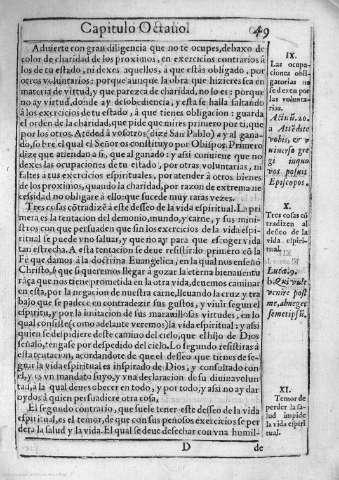 Capitulo Octauo
49
Aduierte con gran diligencia que no te ocupes, debaxo de
color de charidad de los proximos, en exercicios contrarios à
los de tu estado, ni dexes aquellos, à que estàs obligado, por
otros voluntarios: porque aunque la obra que hizieres sea en
materia de virtud, y que parezca de charidad, no lo es: porque
no ay virtud, donde ay desobediencia, y esta se halla faltando
à los exercicios de tu estado, à que tienes obligacion: guarda
el orden de la charidad, que pide que mires primero por ti, que
por los otros. Atēded à vosotros (dize San Pablo) y al gana-
do, sobre el qual el Señor os constituyo por Obispos. Primero
dize que atiendan à si, que al ganado: y asi conuiene que no
dexes las ocupaciones de tu estado, por otras voluntarias, ni
faltes à tus exercicios espirituales, por atender à otros bienes
de los proximos, quando la charidad, por razon de extrema ne
cessidad no obligare à ello: que sucede muy raras vezes.
Tres cosas cōtradizē à este desseo de la vida espiritual. La pri
mera es la tentacion del demonio, mundo, y carne, y sus minis-
tros con que persuaden que sin los exercicios de la vida espiri-
tual se puede vno saluar, y que no ay para que escoger vida
tan estrecha. A esta tentacion se deue resistir: lo primero cō la
Fe que damos à la doctrina Euangelica, en la qual nos enseñò
Christo, q̃ que si queremos llegar à gozar la eterna bienauentu
rāça que nos tiene prometida en la otra vida, deuemos caminar
en esta, por la negacion de nuestra carne, lleuando la cruz y tra
bajo que se padece en contradezir sus gustos, y viuir segun el
espiritu, y por la imitacion de sus marauillosas virtudes, en lo
qual consiste (como adelante veremos) la vida espiritual: y asi
quien se despidiere deste camino del cielo, que el hijo de Dios
señalò, tengase por despedido del cielo. Lo segundo resistiras à
esta tentacion, acordandote de que el desseo que tienes de se-
guir la vida espiritual es inspirado de Dios, y consultado con
el, y es vn mandato suyo, y vna declaracion de su diuina volun
tad, à la qual deues obecer en todo, y por todo, y asi no ay dar
oydos à quien persuadiere otra cosa.
El segundo contrario, que suele tener este desseo de la vida
espiritual, es el temor, de que con sus penosos exercicios se per
derà la salud y la vida. El qual se deue desechar con vna humil-
D
de
IX.
Las ocupa-
ciones obli-
gatorias no
se dexen por
las volunta-
rias.
Actiū. 20.
a Attēdite
vobis, & v
niuerso gre
gi in quo
vos posuit
Episcopos.
X.
Tres cosas cō
tradizen al
desseo de la
vida espiri-
tual.
Luc. 9.
b Qui vult
venire post
me, abneget
semetipsū.
XI.
Temor de
perder la sa-
lud impide
la vida espiri
tual.